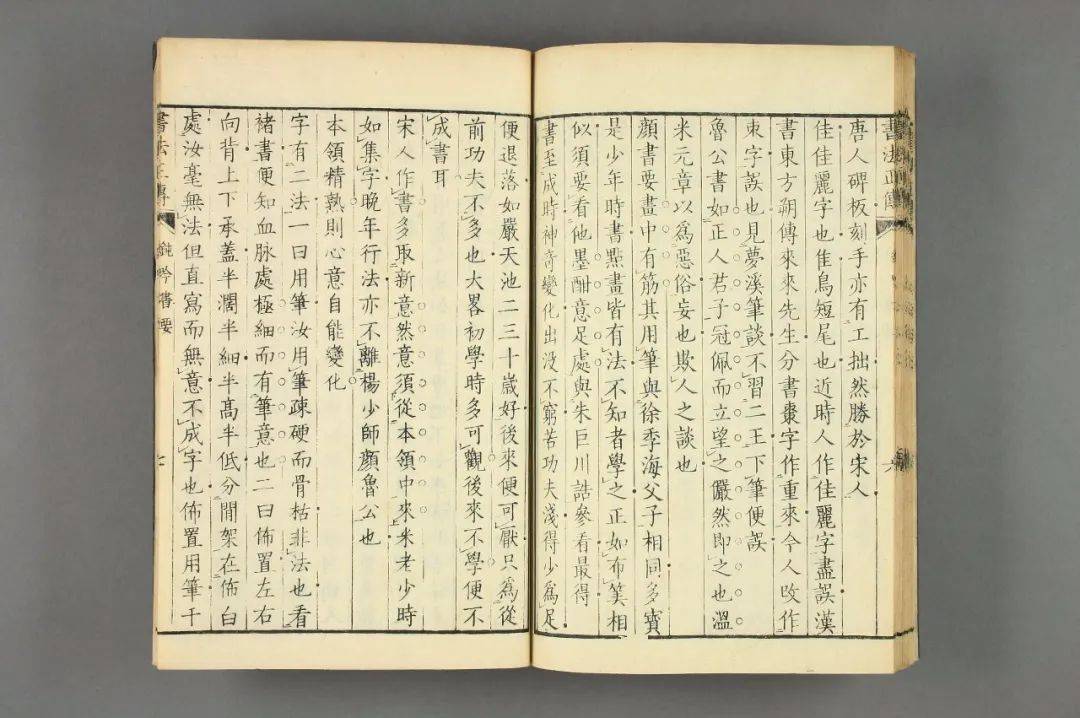 書法正傳
唐人碑板刻手亦有工拙然勝於宋人
佳佳麗字也隹鳥短尾也近時人作佳麗字盡誤漢
書東方朔傳來來先生分書棗字作重來今人改作
朿字誤也見夢溪筆談不習二王下筆便誤
魯公書如正人君子冠佩而立望之儼然即之也溫
米元章以為惡俗妄也欺人之談也
顏書要畫中有筋其用筆與徐季海父子相同多寶
是少年時書點畫皆有法不知者學之正如布筭相
似須要看他墨酣意足處與朱巨川誥參看最得
書至成時神奇變化出沒不窮若功夫淺得少為足
便退落如嚴天池二三十歲好後來便可厭只為從
前功夫不多也大畧初學時多可觀後來不學便不
成書耳
宋人作書多取新意然意須從本領中來米老少時
如集字晚年行法亦不離楊少師顏魯公也
本領精熟則心意自能變化
字有二法一曰用筆汝用筆疎硬而骨枯非法也看
褚書便知血脉處極細而有筆意也二曰佈置左右
向背上下承蓋半濶半細半髙半低分間架在佈白
處汝毫無法但直寫而無意不成字也佈置用筆千
書法正傳
鈍吟書要
七